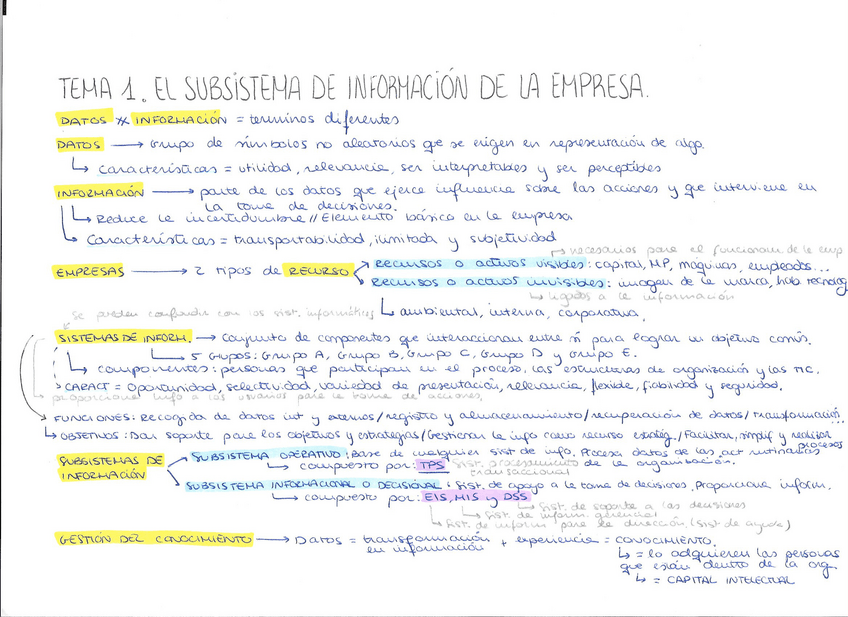 TEMA 1. EL SUBSISTEMA DE INFORMACIÓN DE LA EMPRESA.
DATOS ≠ INFORMACIÓN = terminos diferentes
DATOS → Grupo de símbolos no aleatorios que se erigen en representación de algo.
↳ Características = utilidad, relevancia, ser interpretables y ser perceptibles
INFORMACIÓN → parte de los datos que ejerce influencia sobre las acciones y que interviene en
la toma de decisiones.
↳ Reduce la incertidumbre // Elemento básico en la empresa
↳ Características = transportabilidad, ilimitada y subjetividad
→ necesarios para el funcionam. de la emp
EMPRESAS → 2 tipos de RECURSO → RECURSOS O activos visibles: capital, MP, máquinas, empleados...
→ RECURSOS O activos invisibles: imagen de la marca, hab tecnolog
↳ ligados a la información
Se pueden confundir con los sist. informáticos
↳ ambiental, interna, corporativa.
SISTEMAS DE INFORM. → Conjunto de componentes que interaccionan entre sí para lograr un objetivo común.
↳ 5 Grupos: Grupo A, Grupo B, Grupo C, Grupo D y Grupo E.
↳ componentes: personas que participan en el proceso, las estructuras de organización y las TIC.
↳ CARACT = Oportunidad, selectividad, variedad de presentación, relevancia, flexible, fiabilidad y seguridad.
proporciona info a los usuarios para la toma de acciones.
FUNCIONES: Recogida de datos int y externos/registro y almacenamiento/recuperación de datos/transformación...
↳ OBJETIVOS: Dar soporte para los objetivos y estrategias/Gestionar la info como recurso estratég./Facilitar, simplif y realizar
procesos
SUBSISTEMAS DE INFORMACIÓN → SUBSISTEMA OPERATIVO: Base de cualquier sist de info. Procesa datos de las act rutinarias
↳ compuesto por: TPS sist. procesamiento transaccional de la organización.
SUBSISTEMA INFORMACIONAL O DECISIONAL: Sist. de apoyo a la toma de decisiones. Proporciona inform.
↳ compuesto por: EIS, MIS y DSS
↳ sist. de soporte a las decisiones
↳ Sist. de inform. gerencial
↳ Sist. de inform para la dirección (sist de ayuda)
GESTIÓN DEL CONOCIMIENTO → Datos = transformación en información + experiencia = CONOCIMIENTO.
↳ = lo adquieren las personas
que están dentro de la org.
↳ = CAPITAL INTELECTUAL